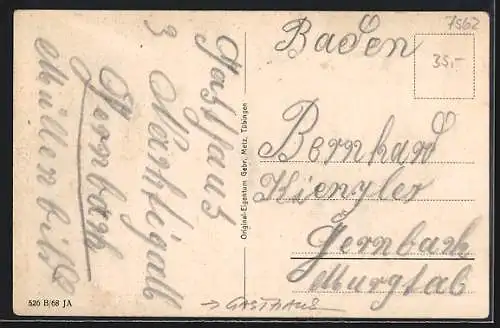 Gasthaus
z
Nachtigall
Gernbach
Müllenbild
Original-Eigentum Gebr. Metz, Tübingen
526 B/68 JA
7562
Baden
35,-
Bernhard
Kienzler
Gernbach
Murgtal
→ GASTHAUS